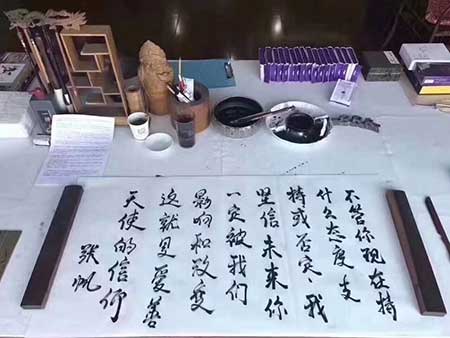 不管你现在持
什么态度支
持或否定、我
坚信未来你
一定被我们
影响和改变
这就是爱善
天使的信仰
张帆